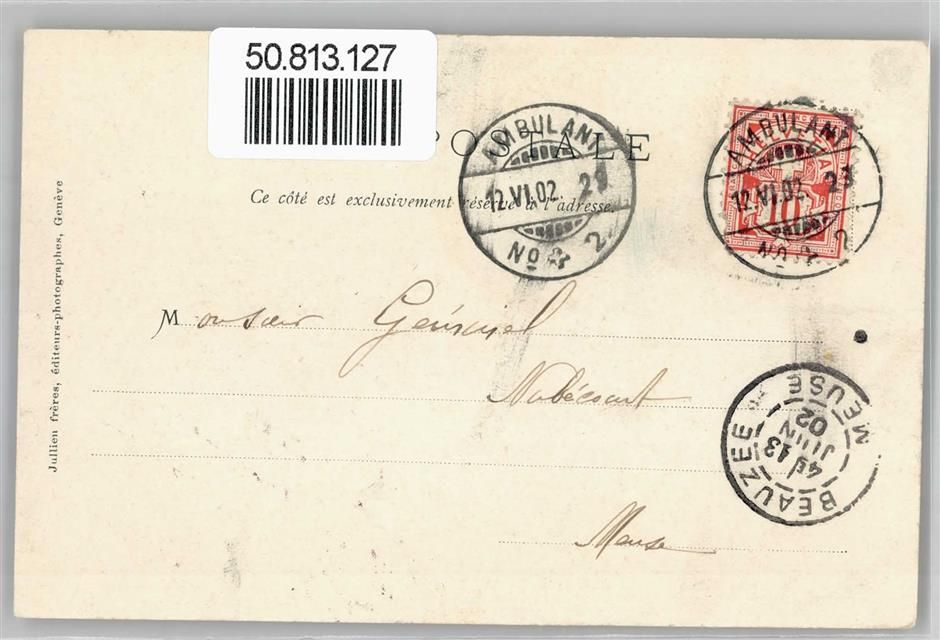 50.813.127
POSTALE
Ce côté est exclusivement réservé à l'adresse.
AMBULANT
12.VI.02. 21
No 2
AMBULANT
12.VI.02. 23
No 2
HELVETIA
10
Jullien frères, éditeurs-photographes, Genève
Monsieur
Nubécourt
Meuse
BEAUZEE
MEUSE
4E
13
JUIN
02